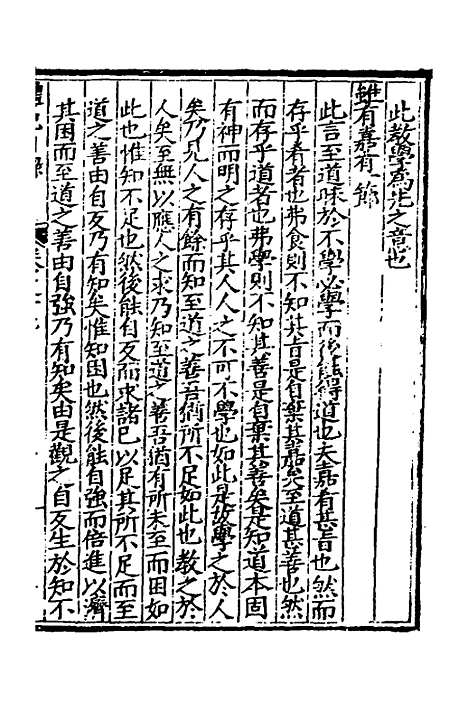 此教學爲先之意也
雖有嘉肴一節
此言至道味於不學必學而後能得道也夫嘉肴其旨也然而
存乎肴者也弗食則不知其旨是自棄其嘉矣至道其善也然
而存乎道者也弗學則不知其善是自棄其善矣是知道本固
有神而明之存乎其人人之不可不學也如此是故學之於人
矣乃見人之有餘而知至道之善吾猶所不足如此也教之於
人矣至無以應人之求乃知至道之善吾猶有所未至而困如
此也惟知不足也然後能自反而求諸已以足其所不足而至
道之善由自反乃有知矣惟知困也然後能自強而倍進以濟
其困而至道之善由自強乃有知矣由是觀之自反生於知不